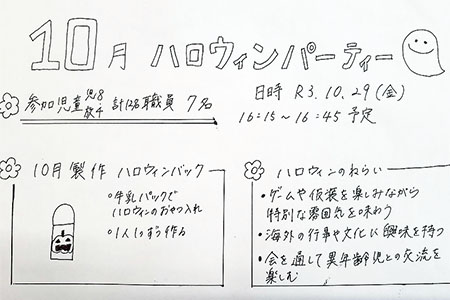 10月 ハロウィンパーティー
日時 R3.10.29(金)
参加児童 児8 放4 計12名 職員 7名
16:15~16:45 予定
10月 製作 ハロウィンバック
・牛乳パックで
ハロウィンのおやつ入れ
・1人1つずつ作る
ハロウィンのねらい
・ゲームや仮装を楽しみながら
特別な雰囲気を味わう
・海外の行事や文化に興味を持つ
・会を通して異年齢児との交流を
楽しむ